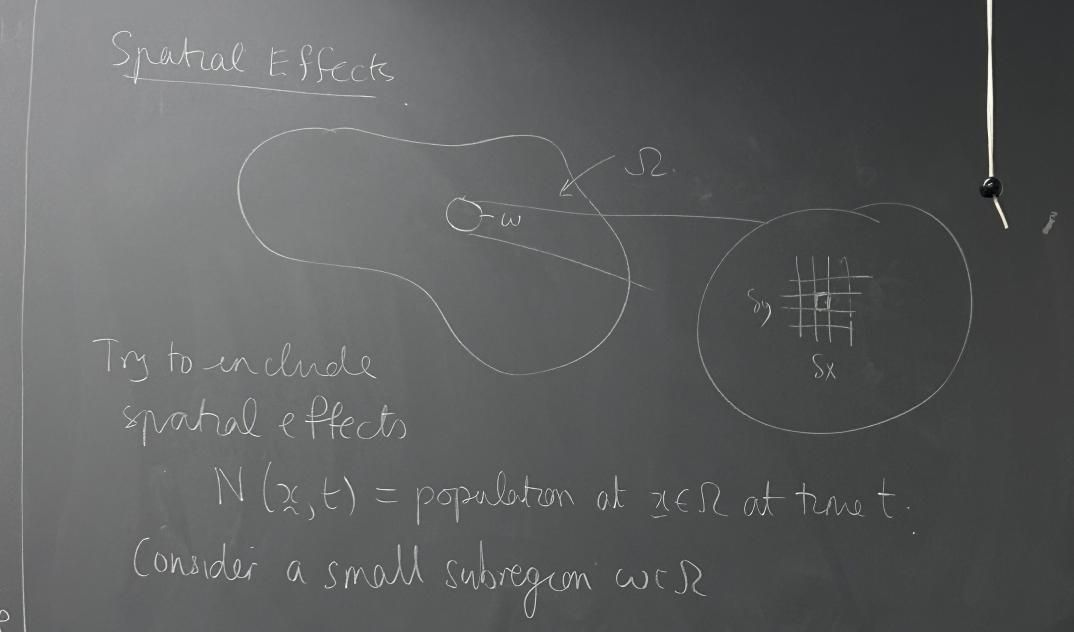 Spatial Effects
Ω
ω
δy
δx
Try to include
spatial effects
N(x,t) = population at x∈Ω at time t.
Consider a small subregion ω⊂Ω